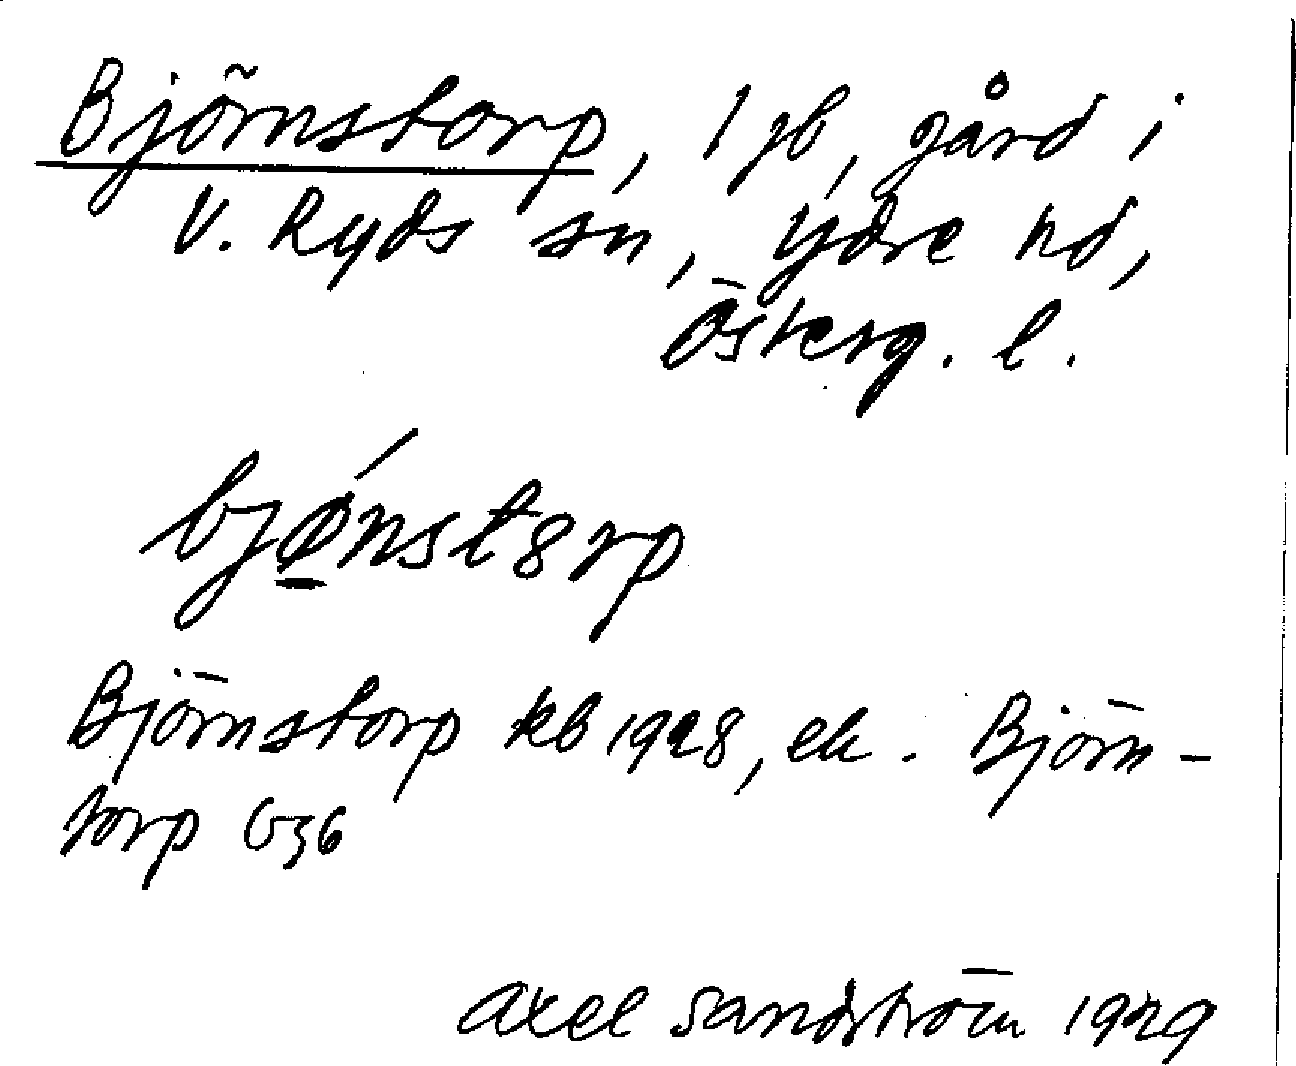 Björnstorp, 1 gb, gård i
V. Ryds sn, Ydre hd,
Österg. l.
bjǿ̱nstȣrp
Björnstorp kb 1928, ek. Björn-
torp G36
Axel Sandström 1929